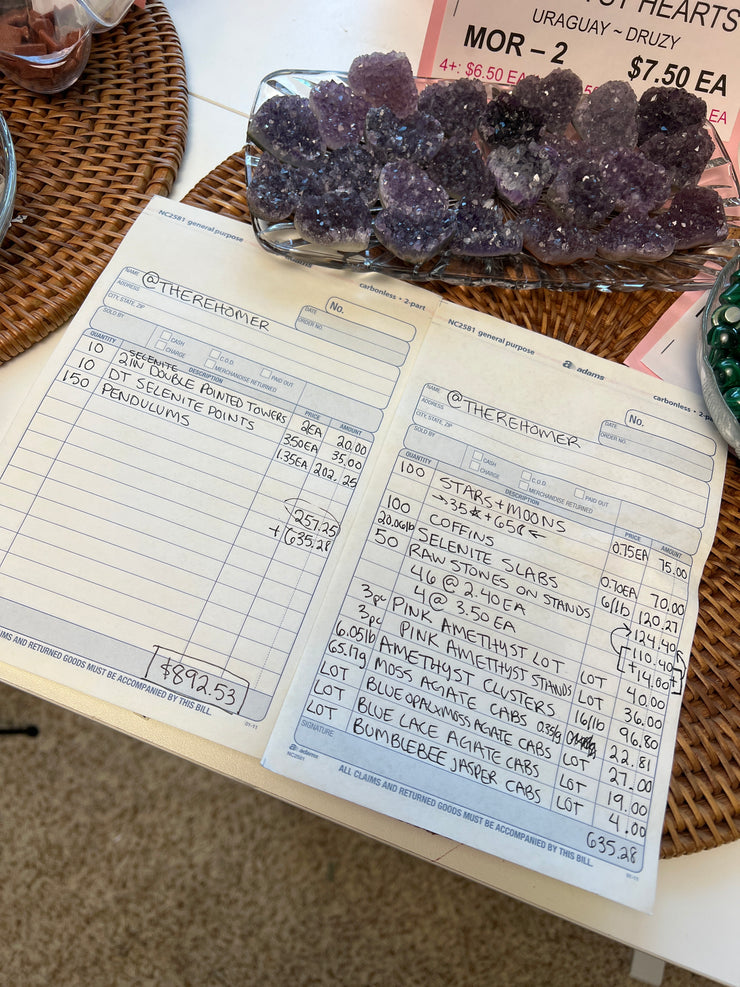 TST HEARTS
URAGUAY ~ DRUZY
MOR - 2
$7.50 EA
4+: $6.50 EA
EA
NC2581 general purpose
carbonless • 2-part
NAME @THEREHOMER
ADDRESS
CITY, STATE, ZIP
SOLD BY
DATE
No.
ORDER NO.
CASH
CHARGE
C.O.D.
MERCHANDISE RETURNED
PAID OUT
QUANTITY DESCRIPTION PRICE AMOUNT
SELENITE
10 2IN DOUBLE POINTED TOWERS 2EA 20.00
10 DT SELENITE POINTS 3.50EA 35.00
150 PENDULUMS 1.35EA 202.25
257.25
+ 635.28
$892.53
CLAIMS AND RETURNED GOODS MUST BE ACCOMPANIED BY THIS BILL.
01-11
NC2581 general purpose
adams
carbonless • 2-p
NAME @THEREHOMER
ADDRESS
CITY, STATE, ZIP
SOLD BY
DATE
No.
ORDER NO.
CASH
CHARGE
C.O.D.
MERCHANDISE RETURNED
PAID OUT
QUANTITY DESCRIPTION PRICE AMOUNT
100 STARS + MOONS 0.75EA 75.00
100 COFFINS 0.70EA 70.00
20.06lb SELENITE SLABS 6/lb 120.27
50 RAW STONES ON STANDS 124.40
46 @ 2.40 EA 110.40
4 @ 3.50 EA +14.00
3pc PINK AMETHYST LOT LOT 40.00
3pc PINK AMETHYST STANDS LOT 36.00
6.05lb AMETHYST CLUSTERS 16/lb 96.80
65.17g MOSS AGATE CABS 0.35/g 22.81
LOT BLUE OPAL x MOSS AGATE CABS LOT 27.00
LOT BLUE LACE AGATE CABS LOT 19.00
LOT BUMBLEBEE JASPER CABS LOT 4.00
SIGNATURE
635.28
adams
NC2581
ALL CLAIMS AND RETURNED GOODS MUST BE ACCOMPANIED BY THIS BILL.
01-11